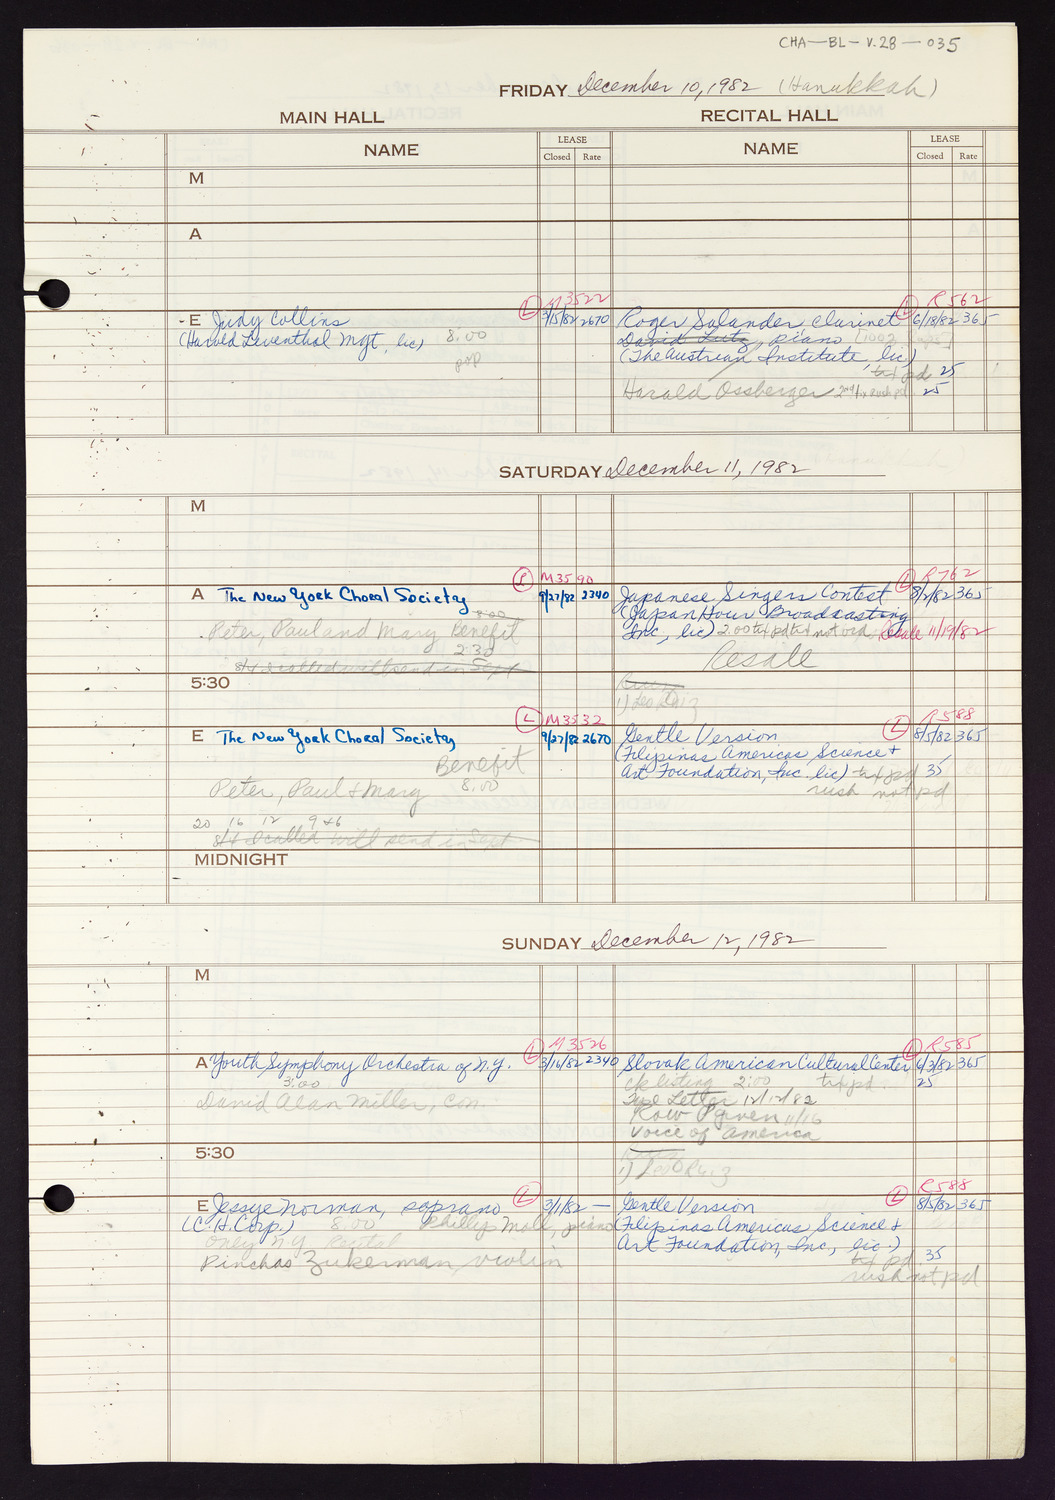 CHA-BL-V.28-035
FRIDAY December 10, 1982 (Hanukkah)
MAIN HALL
RECITAL HALL
NAME
LEASE
Closed Rate
NAME
LEASE
Closed Rate
M
A
L M3522
L R562
E Judy Collins 3/15/82 2670
(Harold Leventhal Mgt, lic) 8:00
pop
Roger Salander clarinet 6/18/82 365
David Lutz, piano
(The Austrian Institute, lic)
txt pd 25
Harald Ossberger 25
SATURDAY December 11, 1982
M
L M3590
L R762
A The New York Choral Society 9/27/82 2340
8:00
Peter, Paul and Mary Benefit
2:30
8/4 I called will send in Sept
Japanese Singers Contest 8/2/82 365
(Japan Hour Broadcasting
Inc, lic) 2:00 txt pd txt not ord, Resale 11/19/82
Resale
5:30
1) Leo Ruiz
L M3532
L R588
E The New York Choral Society 9/27/82 2670
Benefit
Peter, Paul & Mary 8:00
20 16 12 9 & 6
8/4 I called will send in Sept
Gentle Version 8/5/82 365
(Filipinas Americas Science &
Art Foundation, Inc. lic) txt pd 35
rush not pd
MIDNIGHT
SUNDAY December 12, 1982
M
L M3526
L R585
A Youth Symphony Orchestra of N.Y. 3/16/82 2340
3:00
David Alan Miller, Con.
Slovak American Cultural Center 9/3/82 365
ck listing 2:00 txt pd 25
Letter 12/12/82
Row P given 11/16
Voice of America
5:30
1) Leo Ruiz
L R588
E Jessye Norman, soprano L 3/1/82 —
(C.H. Corp.) 8:00 Phillip Moll, piano
Only N.Y. Recital
Pinchas Zukerman, violin
Gentle Version 8/5/82 365
(Filipinas Americas Science &
Art Foundation, Inc., lic.)
txt pd 35
rush not pd